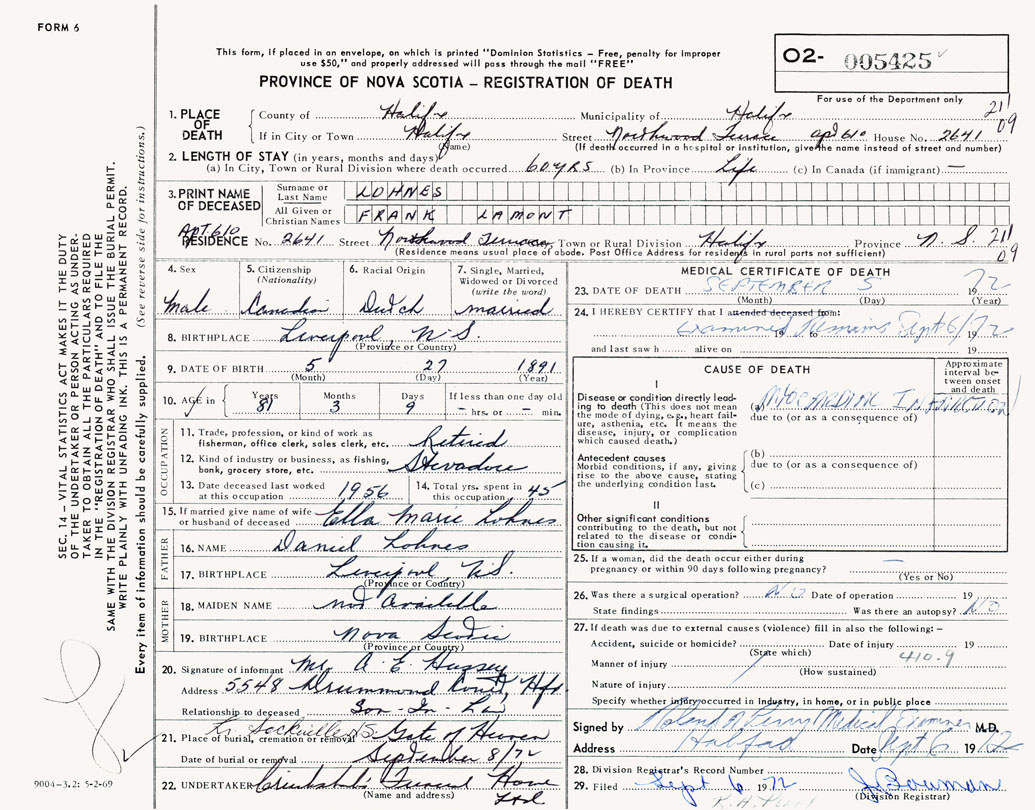 FORM 6
This form, if placed in an envelope, on which is printed "Dominion Statistics – Free, penalty for improper
use $50," and properly addressed will pass through the mail "FREE"
PROVINCE OF NOVA SCOTIA – REGISTRATION OF DEATH
O2- 005425
For use of the Department only
211
09
1. PLACE OF DEATH
County of Halifx Municipality of Halifx
If in City or Town Halifx Street Northwood Terrace apt 610 House No. 2641
(Name) (If death occurred in a hospital or institution, give the name instead of street and number)
2. LENGTH OF STAY (in years, months and days)
(a) In City, Town or Rural Division where death occurred 60 yrs (b) In Province Life (c) In Canada (if immigrant) —
3. PRINT NAME OF DECEASED
Surname or Last Name LOHNES
All Given or Christian Names FRANK LAMONT
Apt. 610
RESIDENCE No. 2641 Street Northwood Terrace, Town or Rural Division Halifx Province N.S. 211
09
(Residence means usual place of abode. Post Office Address for residents in rural parts not sufficient)
4. Sex
male
5. Citizenship
(Nationality)
Canadian
6. Racial Origin
Dutch
7. Single, Married,
Widowed or Divorced
(write the word)
married
8. BIRTHPLACE Liverpool, N.S.
(Province or Country)
9. DATE OF BIRTH 5 27 1891
(Month) (Day) (Year)
10. AGE in
Years Months Days If less than one day old
81 3 9 – hrs. or – min.
OCCUPATION
11. Trade, profession, or kind of work as
fisherman, office clerk, sales clerk, etc. Retired
12. Kind of industry or business, as fishing,
bank, grocery store, etc. Stevadore
13. Date deceased last worked
at this occupation 1956
14. Total yrs. spent in
this occupation 45
15. If married give name of wife
or husband of deceased Ella Marie Lohnes
FATHER
16. NAME Daniel Lohnes
17. BIRTHPLACE Liverpool, N.S.
(Province or Country)
MOTHER
18. MAIDEN NAME not Available
19. BIRTHPLACE Nova Scotia
(Province or Country)
20. Signature of informant Mr. A. E. Hussey
Address 5548 Drummond Court, Hfx.
Relationship to deceased Son-In-Law
Lr. Sackville NS
21. Place of burial, cremation or removal Gate of Heaven
Date of burial or removal September 8/72
22. UNDERTAKER Cruikshank's Funeral Home
(Name and address) Ltd
MEDICAL CERTIFICATE OF DEATH
23. DATE OF DEATH SEPTEMBER 5 1972
(Month) (Day) (Year)
24. I HEREBY CERTIFY that I attended deceased from:
Examined Remains Sept 6/72
19 to 19
and last saw h alive on 19
CAUSE OF DEATH
Approximate
interval be-
tween onset
and death
I
Disease or condition directly lead-
ing to death (This does not mean
the mode of dying, e.g., heart fail-
ure, asthenia, etc. It means the
disease, injury, or complication
which caused death.)
(a) MYOCARDIAL INFARCTION
due to (or as a consequence of)
Antecedent causes
Morbid conditions, if any, giving
rise to the above cause, stating
the underlying condition last.
(b)
due to (or as a consequence of)
(c)
II
Other significant conditions
contributing to the death, but not
related to the disease or condi-
tion causing it.
25. If a woman, did the death occur either during
pregnancy or within 90 days following pregnancy? —
(Yes or No)
26. Was there a surgical operation? No Date of operation 19
State findings Was there an autopsy? NO
27. If death was due to external causes (violence) fill in also the following: –
Accident, suicide or homicide? Date of injury 19
(State which) 410.9
Manner of injury
(How sustained)
Nature of injury
Specify whether injury occurred in industry, in home, or in public place
Signed by Roland Perry Medical Examiner M.D.
Address Halifax Date Sept 6 1972
28. Division Registrar's Record Number
29. Filed Sept 6 1972 J. Bowman
(Division Registrar)
SEC. 14 – VITAL STATISTICS ACT MAKES IT THE DUTY
OF THE UNDERTAKER OR PERSON ACTING AS UNDER-
TAKER TO OBTAIN ALL THE PARTICULARS REQUIRED
IN THE "REGISTRATION OF DEATH" AND TO FILE THE
SAME WITH THE DIVISION REGISTRAR WHO SHALL ISSUE THE BURIAL PERMIT.
WRITE PLAINLY WITH UNFADING INK. THIS IS A PERMANENT RECORD.
Every item of information should be carefully supplied. (See reverse side for instructions.)
9004-3.2: 5-2-69